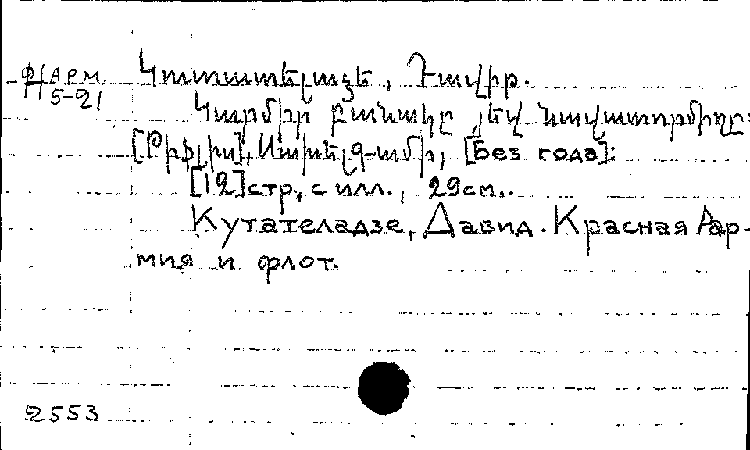 Ф АРМ.
5-21
Կուտատելաձե, Դավիթ.
Կարմիր բանակը յեվ նավատորմիղը:
[Թիֆլիս], Սախելգամի, [без года]:
[12]стр, с илл., 29см..
Кутателадзе, Давид. Красная Ар-
мия и флот.
2553